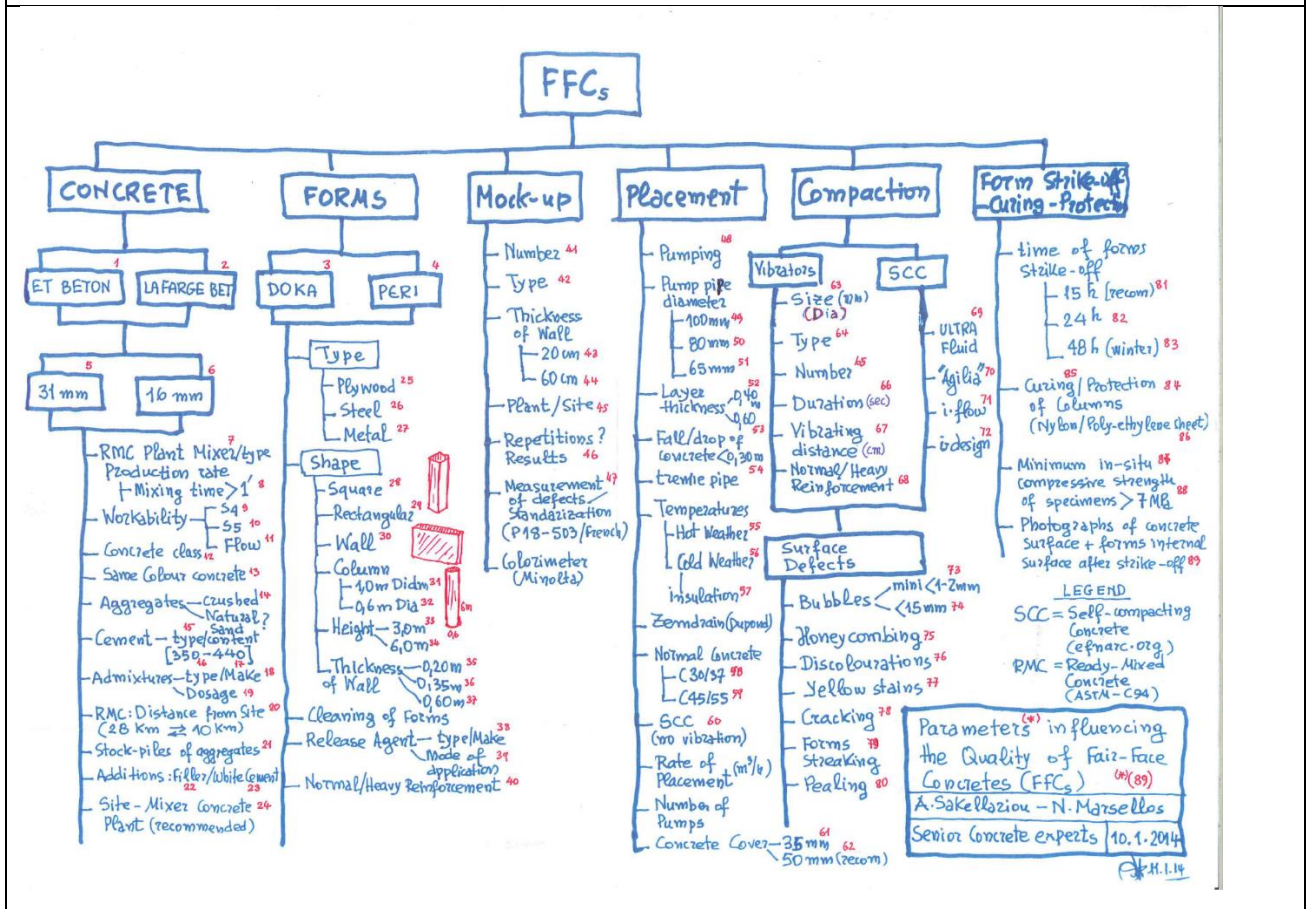 FFCs
CONCRETE
1 2
ET BETON LAFARGE BET
5 6
31 mm 16 mm
RMC Plant Mixer/type 7
Production rate
Mixing time > 1' 8
Workability S4 9
S5 10
Flow 11
Concrete class 12
Same Colour concrete 13
Aggregates Crushed 14
Natural?
15 Sand
Cement - type/content
[350-440]
16 17
Admixtures - type/Make 18
Dosage 19
RMC: Distance from Site 20
(28 Km ⇄ 10 Km)
Stock-piles of aggregates 21
Additions: Filler/White Cement
22 23
Site-Mixer Concrete 24
Plant (recommended)
FORMS
3 4
DOKA PERI
Type
Plywood 25
Steel 26
Metal 27
Shape
Square 28
Rectangular 29
Wall 30
Column
1,0m Diam 31
0,6m Dia 32
Height - 3,0m 33
6,0m 34
6m
0,6
Thickness 0,20m 35
of Wall 0,35m 36
0,60m 37
Cleaning of Forms
Release Agent - type/Make 38
Mode of 39
application
Normal/Heavy Reinforcement 40
Mock-up
Number 41
Type 42
Thickness
of Wall
20 cm 43
60 cm 44
Plant/Site 45
Repetitions?
Results 46
Measurement 47
of defects/
Standarization
(P18-503/French)
Colorimeter
(Minolta)
Placement
Pumping 48
Pump pipe
diameter
100mm 49
80mm 50
65mm 51
Layer 52
thickness 0,40 m
0,60
Fall/drop of 53
concrete < 0,30m
tremie pipe 54
Temperatures
Hot Weather 55
Cold Weather 56
insulation 57
Zemdrain (Dupond)
Normal Concrete
C30/37 58
C45/55 59
SCC 60
(no vibration)
Rate of
Placement (m³/h)
Number of
Pumps
Concrete Cover - 35 mm 61
50 mm (recom) 62
Compaction
Vibrators SCC
Size (mm) 63
(Dia)
Type 64
Number 65
66
Duration (sec)
Vibrating 67
distance (cm)
Normal/Heavy
Reinforcement 68
69
ULTRA
Fluid
"Agilia" 70
i.flow 71
i-design 72
Surface
Defects
Bubbles mini < 1-2mm 73
< 15 mm 74
Honeycombing 75
Discolourations 76
Yellow stains 77
Cracking 78
Forms 79
Streaking
Pealing 80
Form Strike-off
-Curing-Protection
time of forms
strike-off
15 h (recom) 81
24 h 82
48 h (winter) 83
85
Curing/Protection 84
of Columns
(Nylon/Poly-ethylene sheet)
86
Minimum in-situ
compressive strength
of specimens > 7 MPa 88
Photographs of concrete
surface + forms internal
surface after strike-off 89
LEGEND
SCC = Self-compacting
Concrete
(efnarc.org)
RMC = Ready-Mixed
Concrete
(ASTM-C94)
Parameters (*) influencing
the Quality of Fair-Face
Concretes (FFCs) (*)(89)
A. Sakellariou - N. Marsellos
Senior Concrete experts 10.1.2014
11.1.14